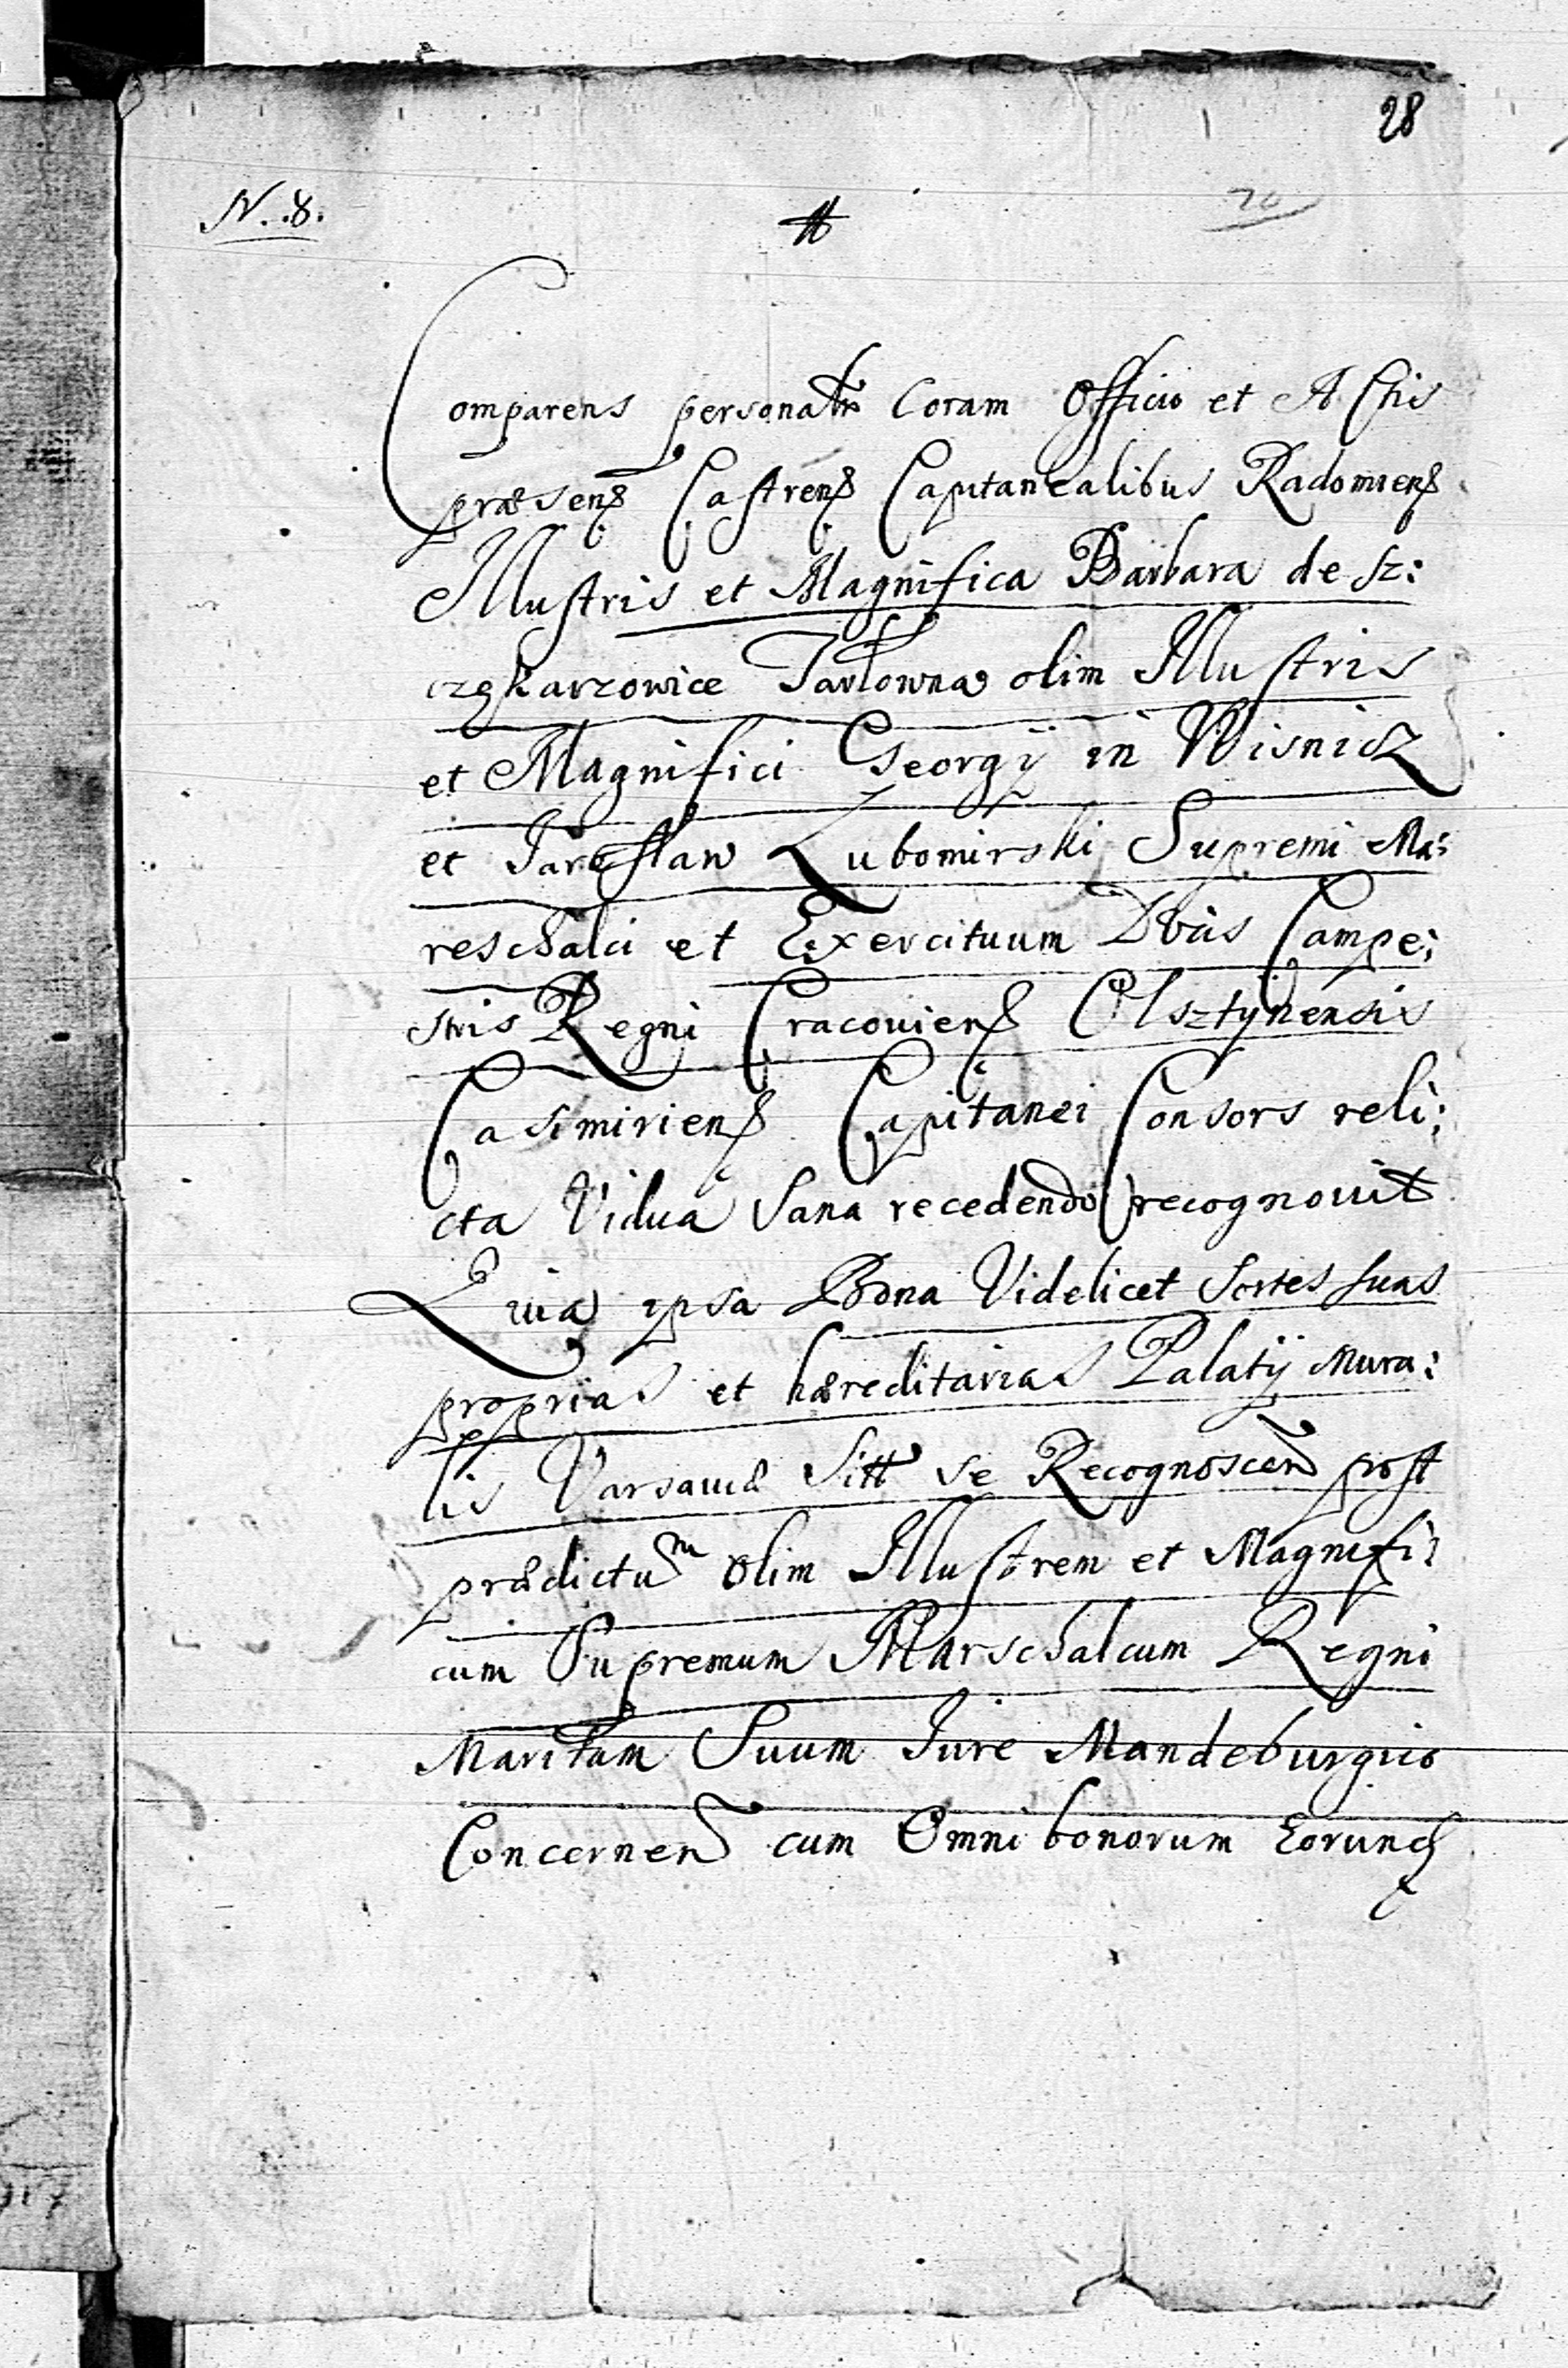 28
N. 8.
70
Comparens personalr Coram Officio et Actis
præsens Castrens Capitanealibus Radomiens
Illustris et Magnifica Barbara de Sz:
czekarzowice Tarlowna olim Illustris
et Magnifici Georgÿ in Wisnicz
et Jarosław Lubomirski Supremi Ma:
reschalci et Exercituum Ducis Campe:
stris Regni Cracouiens Olsztÿnensis
Casimiriens Capitanei Consors reli:
cta Vidua Sana recedendo recognouit
Quia ipsa Bona Videlicet Sortes suas
proprias et hæreditarias Palatÿ Mura:
lis Varsauiæ Sitt se Recognoscen post
prædictum olim Illustrem et Magnifi:
cum Supremum Marschalcum Regni
Maritum Suum Iure Mandeburgiio
Concernen cum Omni bonorum Eorund